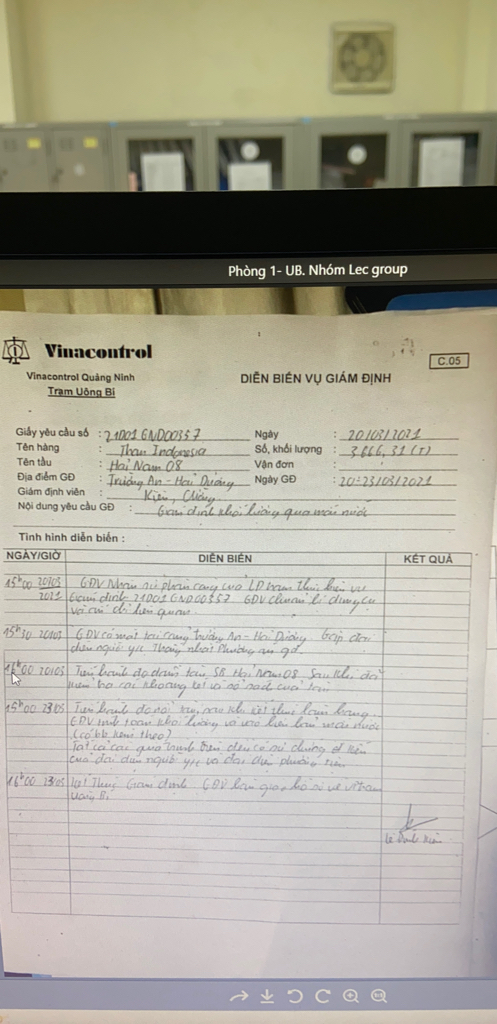 Phòng 1- UB. Nhóm Lec group
Vinacontrol
C.05
Vinacontrol Quảng Ninh
Trạm Uông Bí
DIỄN BIẾN VỤ GIÁM ĐỊNH
Giấy yêu cầu số : 21D01GND00357 Ngày : 20/03/2021
Tên hàng : Than Indonesia Số, khối lượng : 3.666,31 (T)
Tên tầu : Hải Nam 08 Vận đơn :
Địa điểm GĐ : Trường An - Hải Dương Ngày GĐ : 20-23/03/2021
Giám định viên : Kiên,
Nội dung yêu cầu GĐ : Giám định khối lượng qua mớn nước
Tình hình diễn biến :
NGÀY/GIỜ DIỄN BIẾN KẾT QUẢ
15h00 20/03 GĐV Nhận sự phân công của LĐ trạm thực hiện vụ
2021 Giám định 21D01GND00357 GĐV chuẩn bị dụng cụ
và chỉ liên quan.
15h30 20/03 GĐV có mặt tại cảng Trường An - Hải Dương. Gặp đại
diện người y/c Thống nhất Phương án gđ
00 20/03 Tiến hành đo tàu SB Hải Nam 08. Sau khi đã
kiểm tra các khoang két và của tàu
15h00 23/03 Tiến hành đo sau khi kết thúc hàng.
GĐV tính toán khối lượng và biên bản mớn nước
(có bb kèm theo)
Tất cả các quá trình trên đều có sự chứng kiến
của đại diện người y/c và đại diện phương tiện
16h00 23/03 Kết thúc Giám định GĐV bàn giao hồ sơ về VP trạm
Uông Bí.
Lê Kiên